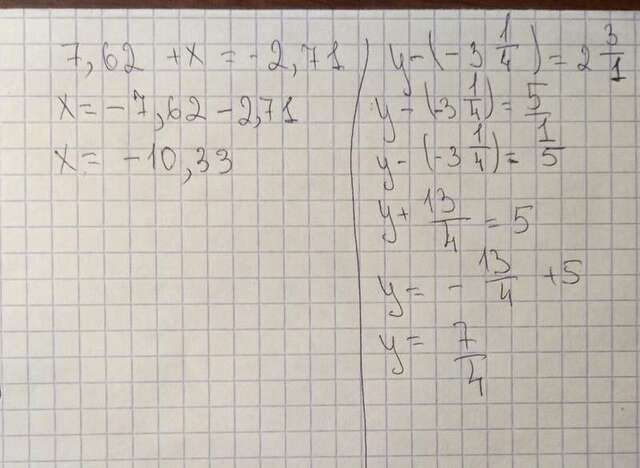 7,62 + x = -2,71
x = -7,62 - 2,71
x = -10,33
y - (-3 1/4) = 2 3/1
y - (-3 1/4) = 5/1
y - (-3 1/4) = 1/5
y + 13/4 = 5
y = - 13/4 + 5
y = 7/4